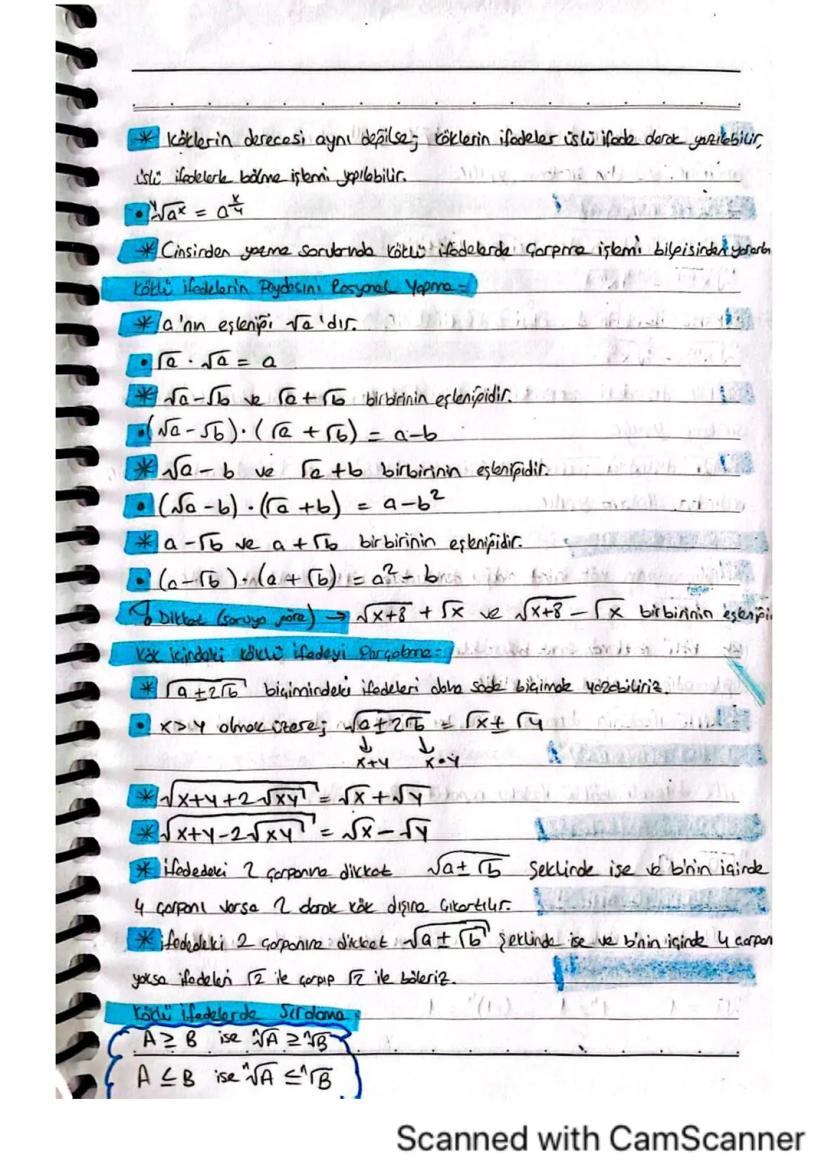 * Köklerin derecesi aynı değilse; köklerin ifadeler üslü ifade olarak yazılabilir,
üslü ifadelerle bölme işlemi yapılabilir.
• ⁴√aˣ = a^(x/4)
* Cinsinden yazma sorularında köklü ifadelerde çarpma işlemi bilgisinden yararlan
Köklü ifadelerin Paydasını Rasyonel Yapma =
* a'nın eşleniği √a 'dır.
• √a · √a = a
* √a - √b ve √a + √b birbirinin eşleniğidir.
• (√a - √b) · (√a + √b) = a - b
* √a - b ve √a + b birbirinin eşleniğidir.
• (√a - b) · (√a + b) = a - b²
* a - √b ve a + √b birbirinin eşleniğidir.
• (a - √b) · (a + √b) = a² - b
Dikkat (soruya göre) → √(x+8) + √x ve √(x+8) - √x birbirinin eşleniği
Kök içindeki köklü ifadeyi Parçalama =
* √(a ± 2√b) biçimindeki ifadeleri daha sade biçimde yazabiliriz.
• x > y olmak üzere; √(a ± 2√b) = √x ± √y
↓ ↓
x+y x•y
* √(x+y+2√(xy)) = √x + √y
* √(x+y-2√(xy)) = √x - √y
* ifadedeki 2 çarpanına dikkat √(a ± √b) Şeklinde ise ve b'nin içinde
4 çarpanı varsa 2 olarak kök dışına çıkartılır.
* ifadedeki 2 çarpanına dikkat √(a ± √b) şeklinde ise ve b'nin içinde 4 çarpan
yoksa ifadeleri √2 ile çarpıp √2 ile böleriz.
Köklü ifadelerde Sıralama :
A ≥ B ise ⁿ√A ≥ ⁿ√B
A ≤ B ise ⁿ√A ≤ ⁿ√B
Scanned with CamScanner